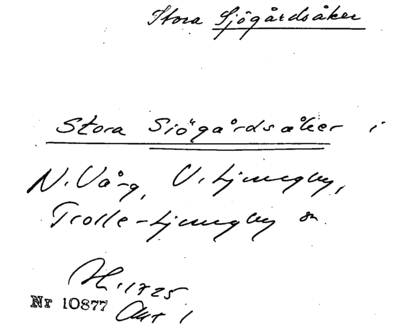 Stora Sjögårdsåker
Stora Sjögårdsåker i
N. Vång, V. Ljungby,
Trolle-Ljungby sn.
H. 1725
Nr 10877 Akt 1